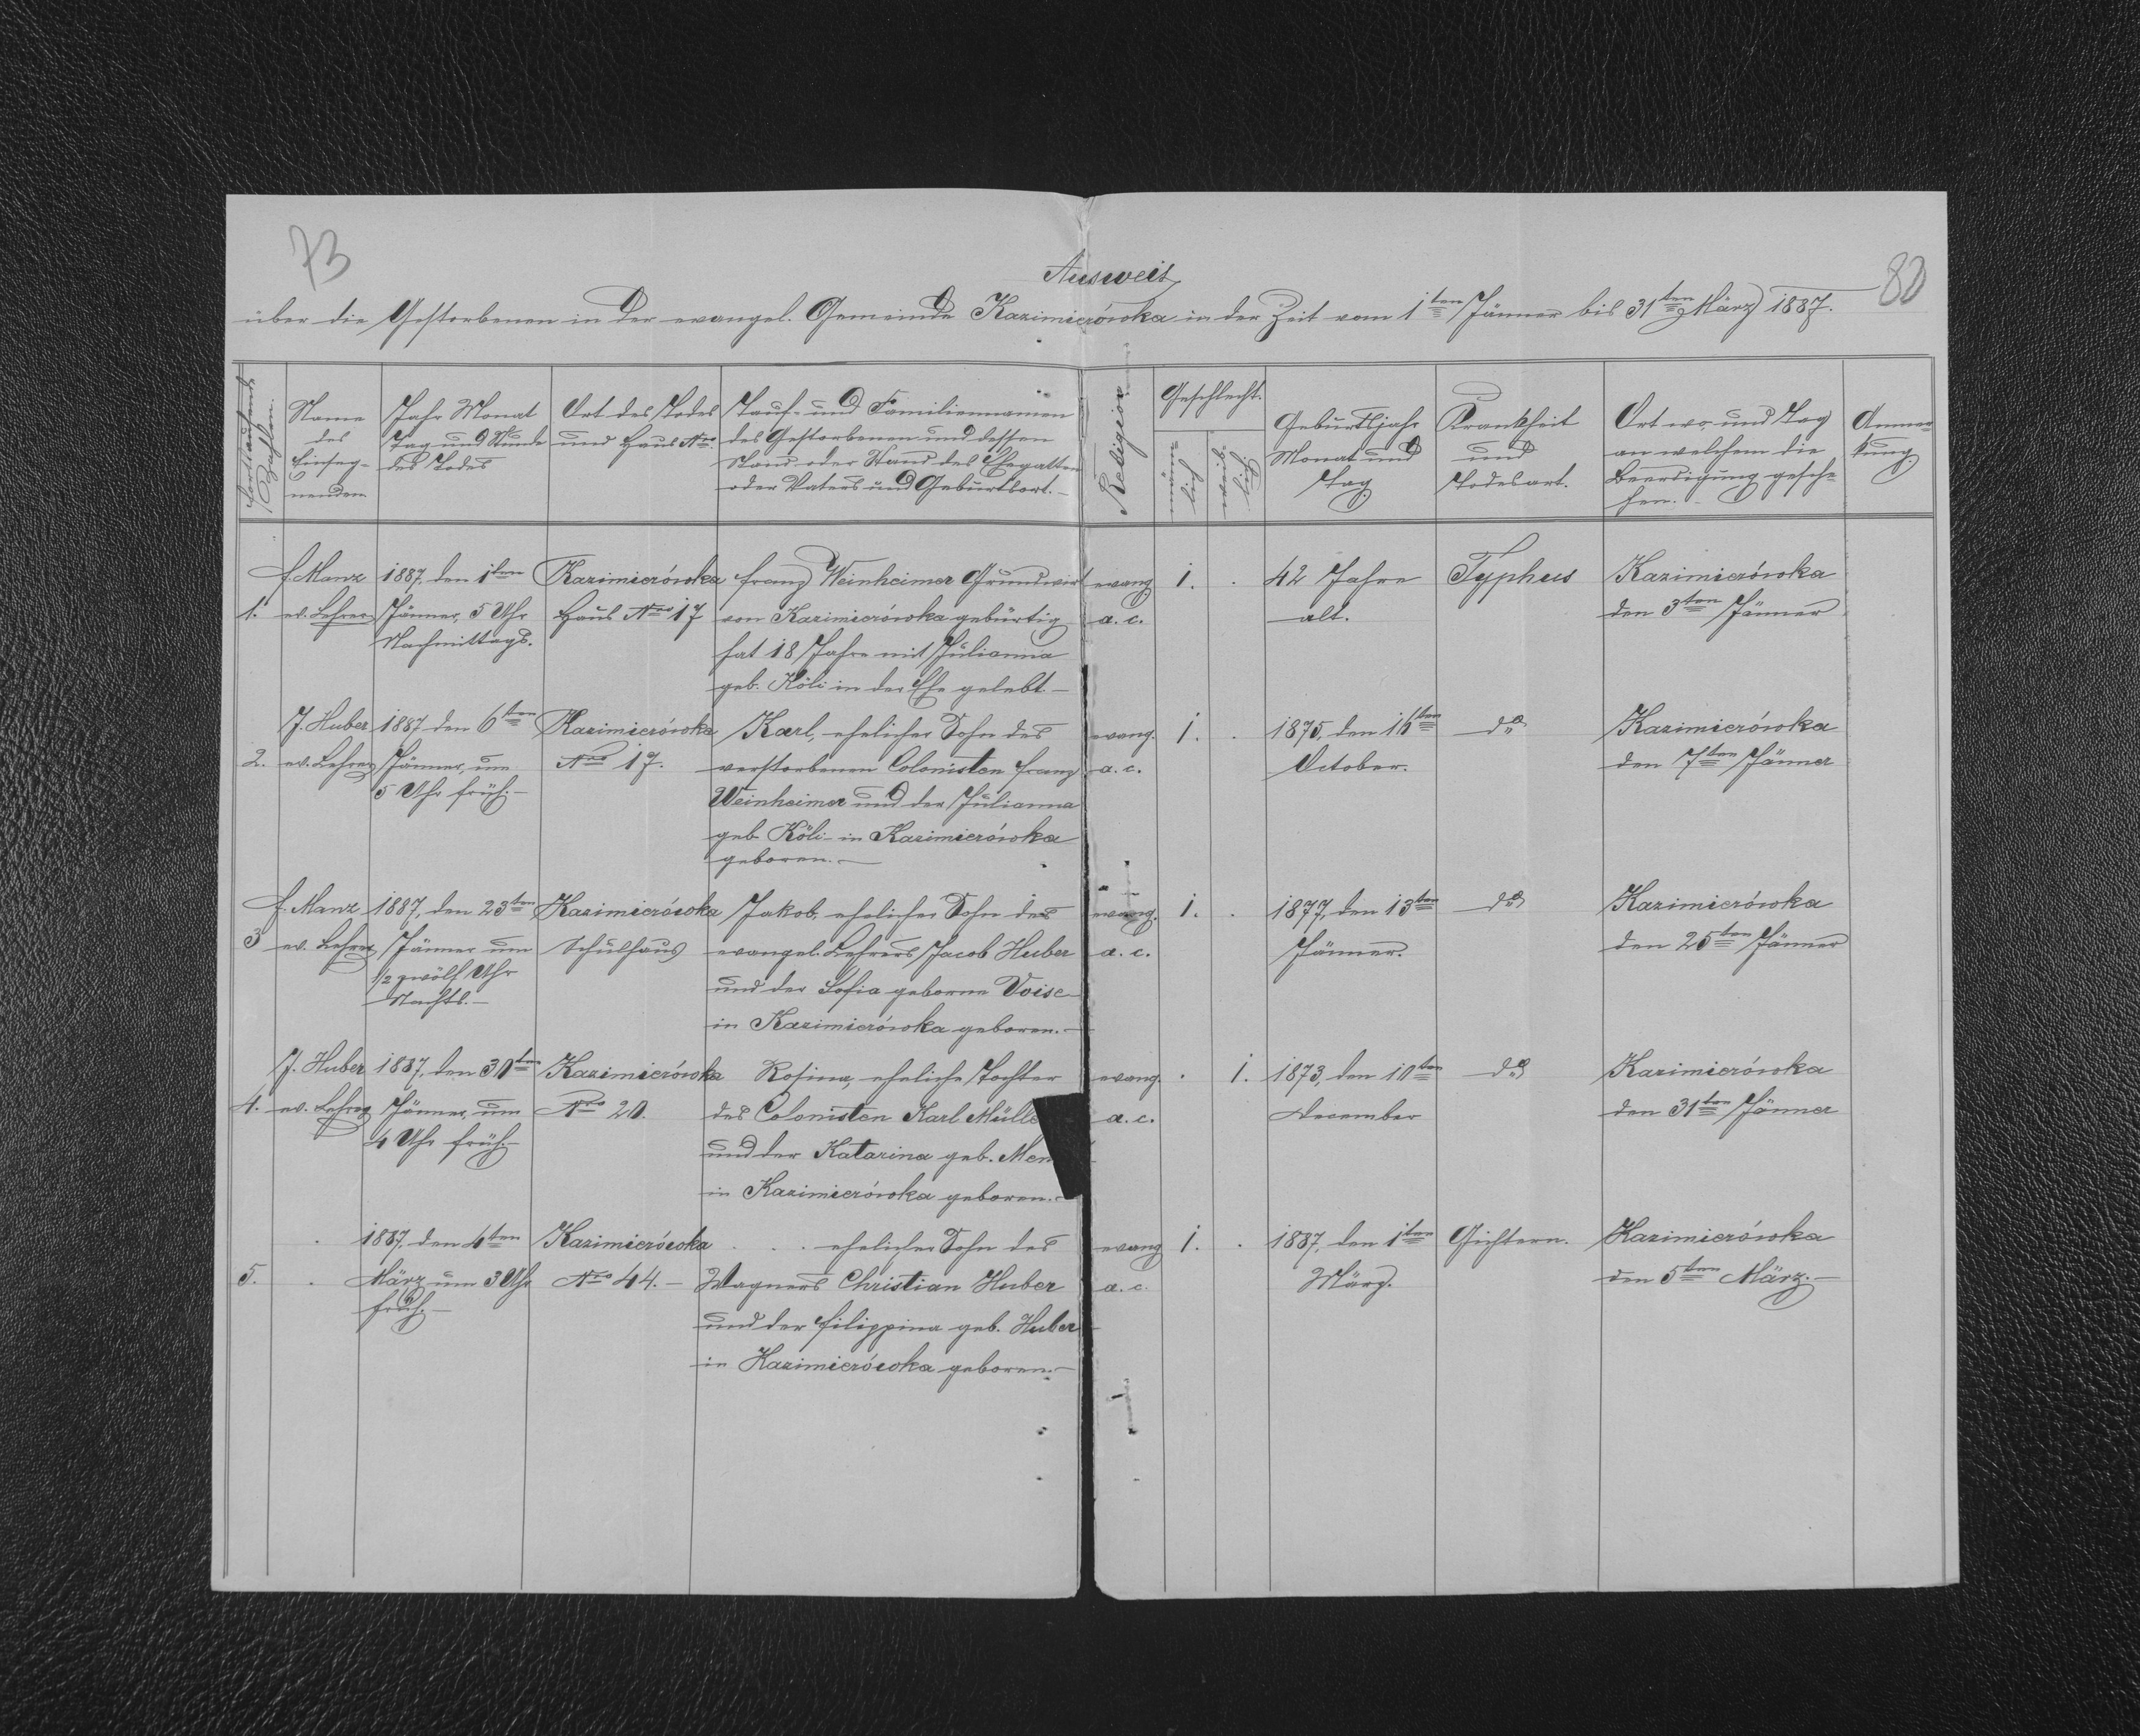 73
80
Ausweis
über die Gestorbenen in der evangel. Gemeinde Kazimierówka in der Zeit vom 1ten Jänner bis 31ten März 1887.
Fortlaufende Zahlen.
Name
des
Einseg-
nenden
Jahr Monat
Tag und Stunde
des Todes
Ort des Todes
und Haus Nro
Tauf- und Familiennamen
des Gestorbenen und dessen
Stand oder Stand des Ehegatten
oder Vaters und Geburtsort.-
Religion
Geschlecht.
männ
lich
weib
lich
Geburtsjahr
Monat und
Tag
Krankheit
und
Todesart.
Ort wo und Tag
an welchem die
Beerdigung gesche-
hen.-
Anmer-
kung
1.
f. Manz
ev. Lehrer
1887, den 1ten
Jänner, 5 Uhr
Nachmittags.
Kazimierówka
Haus Nro 17
Franz Weinheimer Grundwirt
von Kazimierówka gebürtig
hat 18 Jahre mit Julianna
geb. Köli in der Ehe gelebt.-
evang
a. c.
1.
.
42 Jahre
alt.
Typhus
Kazimierówka
den 3ten Jänner
2.
J. Huber
ev. Lehrer
1887 den 6ten
Jänner, um
5 Uhr früh.-
Kazimierówka
Nro 17.
Karl, ehelicher Sohn des
verstorbenen Colonisten Franz
Weinheimer und der Julianna
geb Köli - in Kazimierówka
geboren.-
evang.
a. c.
1.
.
1875, den 16ten
October.
do
Kazimierówka
den 7ten Jänner
3
f. Manz
ev. Lehrer
1887, den 23ten
Jänner um
1/2 zwölf Uhr
Nachts.-
Kazimierówka
Schulhaus
Jakob, ehelicher Sohn des
evangel. Lehrers Jacob Huber
und der Sofia geborne Voise
in Kazimierówka geboren.-
evang.
a. c.
1.
.
1877, den 13ten
Jänner.
do
Kazimierówka
den 25ten Jänner
4.
J. Huber
ev. Lehrer
1887, den 30ten
Jänner, um
4 Uhr früh.-
Kazimierówka
Nro 20.
Rosina, eheliche Tochter
des Colonisten Karl Mülle
und der Katarina geb. Men
in Kazimierówka geboren.-
evang.
a. c.
.
1.
1873, den 10ten
December
do
Kazimierówka
den 31ten Jänner
5.
.
.
1887, den 4ten
März um 3 Uhr
früh.-
Kazimierówka
Nro 44.-
. . . ehelicher Sohn des
Wagners Christian Huber
und der Filippina geb. Huber
in Kazimierówka geboren.-
evang
a. c.
1.
.
1887, den 1ten
März.
Gichtern.
Kazimierówka
den 5ten März.-